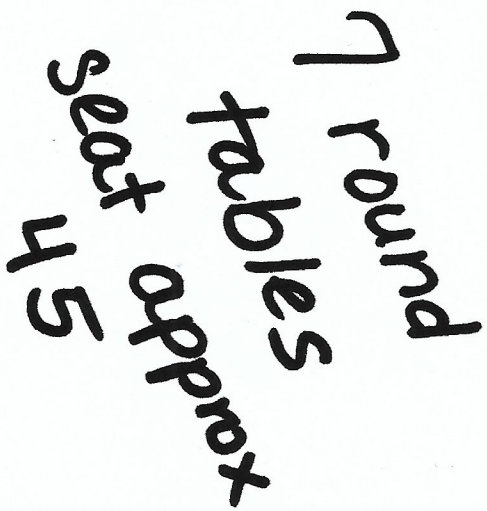 7 round
tables
seat approx
45